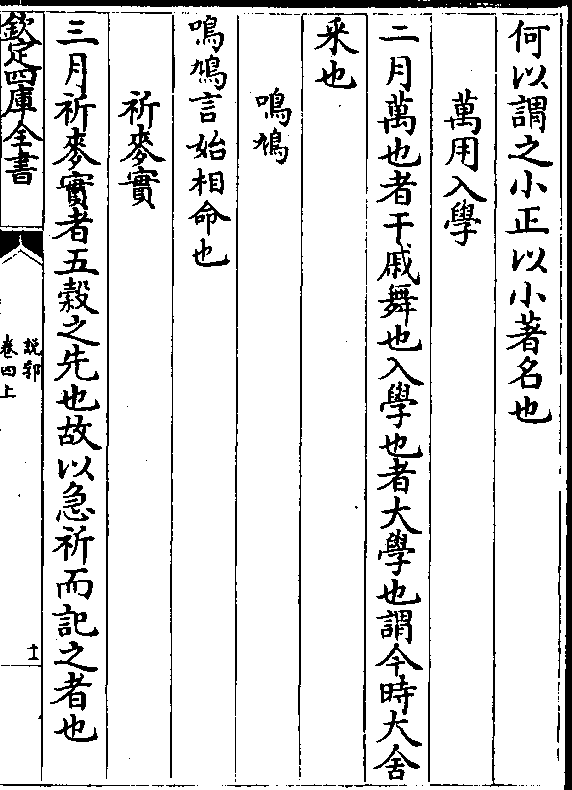 何以謂之小正以小著名也
萬用入學
二月萬也者干戚舞也入學也者大學也謂今時大舍
采也
鳴鳩
鳴鳩言始相命也
祈麥實
三月祈麥實者五穀之先也故以急祈而記之者也
欽定四庫全書
説郛
卷四上
十一